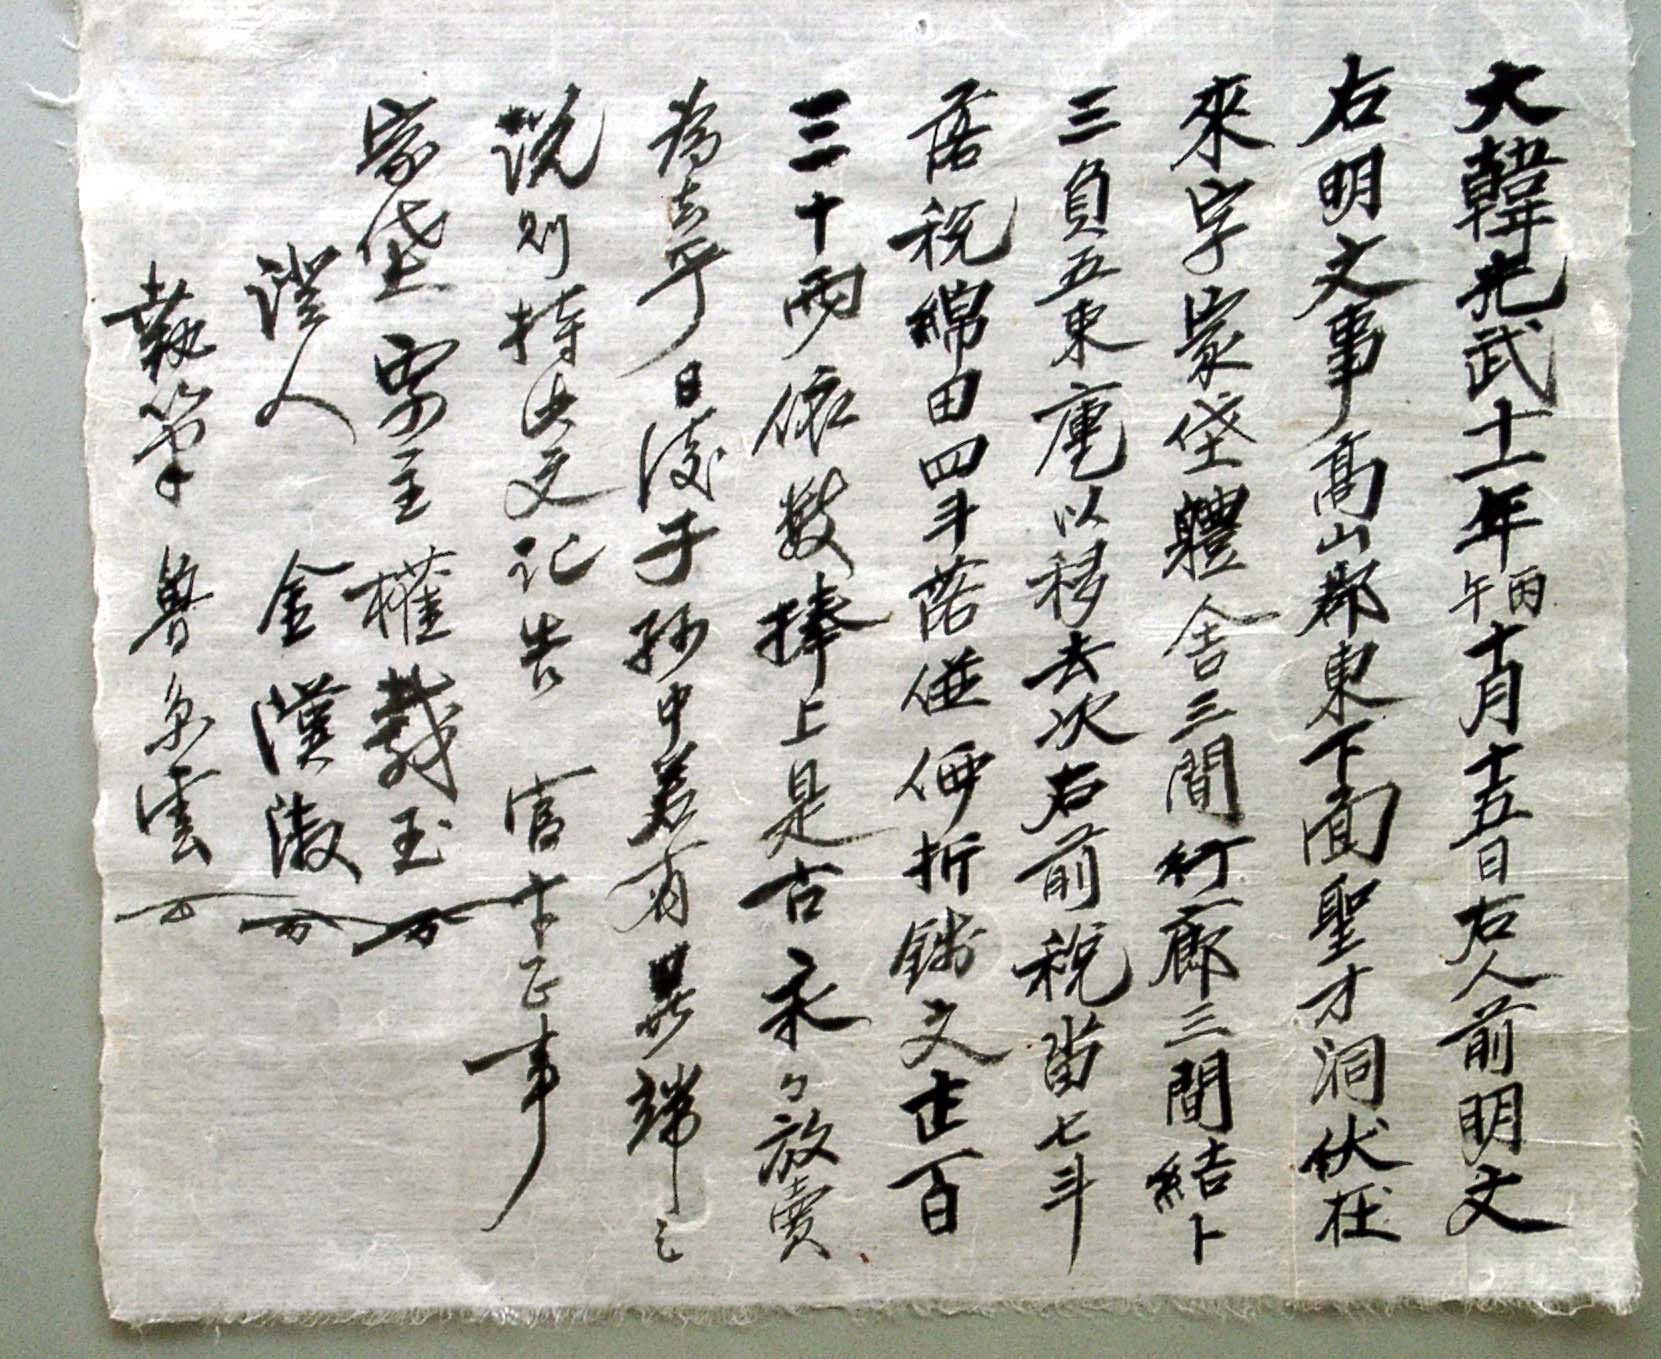 大韓光武十一年丙午十月十五日右人前明文
右明文事高山郡東下面聖才洞伏在
來字家垈體舍三間行廊三間結卜
三負五束庫以移去次右前稅畓七斗
落稅綿田四斗落並価折錢文壹百
三十兩依數捧上是古永〻放賣
爲去乎日後子孫中若有異端之
說則持此文記告 官卞正事
家垈田主權載玉
證人 金漢淑
執筆 魯雲